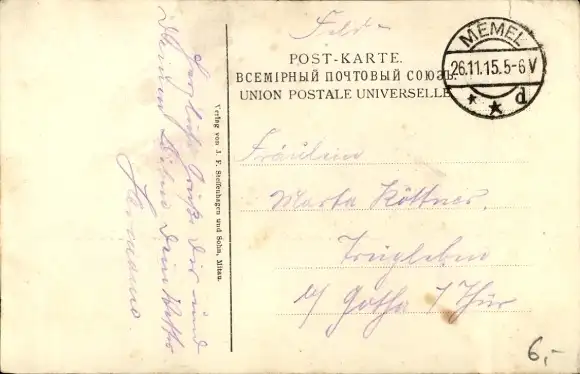 Feld-
POST-KARTE.
ВСЕМІРНЫЙ ПОЧТОВЫЙ СОЮЗЪ
UNION POSTALE UNIVERSELLE
MEMEL
26.11.15.5-6V
d
Fräulein
Marta Köttner.
Trügleben
b/ Gotha / Thür
Verlag von J. F. Steffenhagen und Sohn, Mitau.
Herzliche Grüße Dir und
Deinen Lieben Dein
Hermann.
6,-